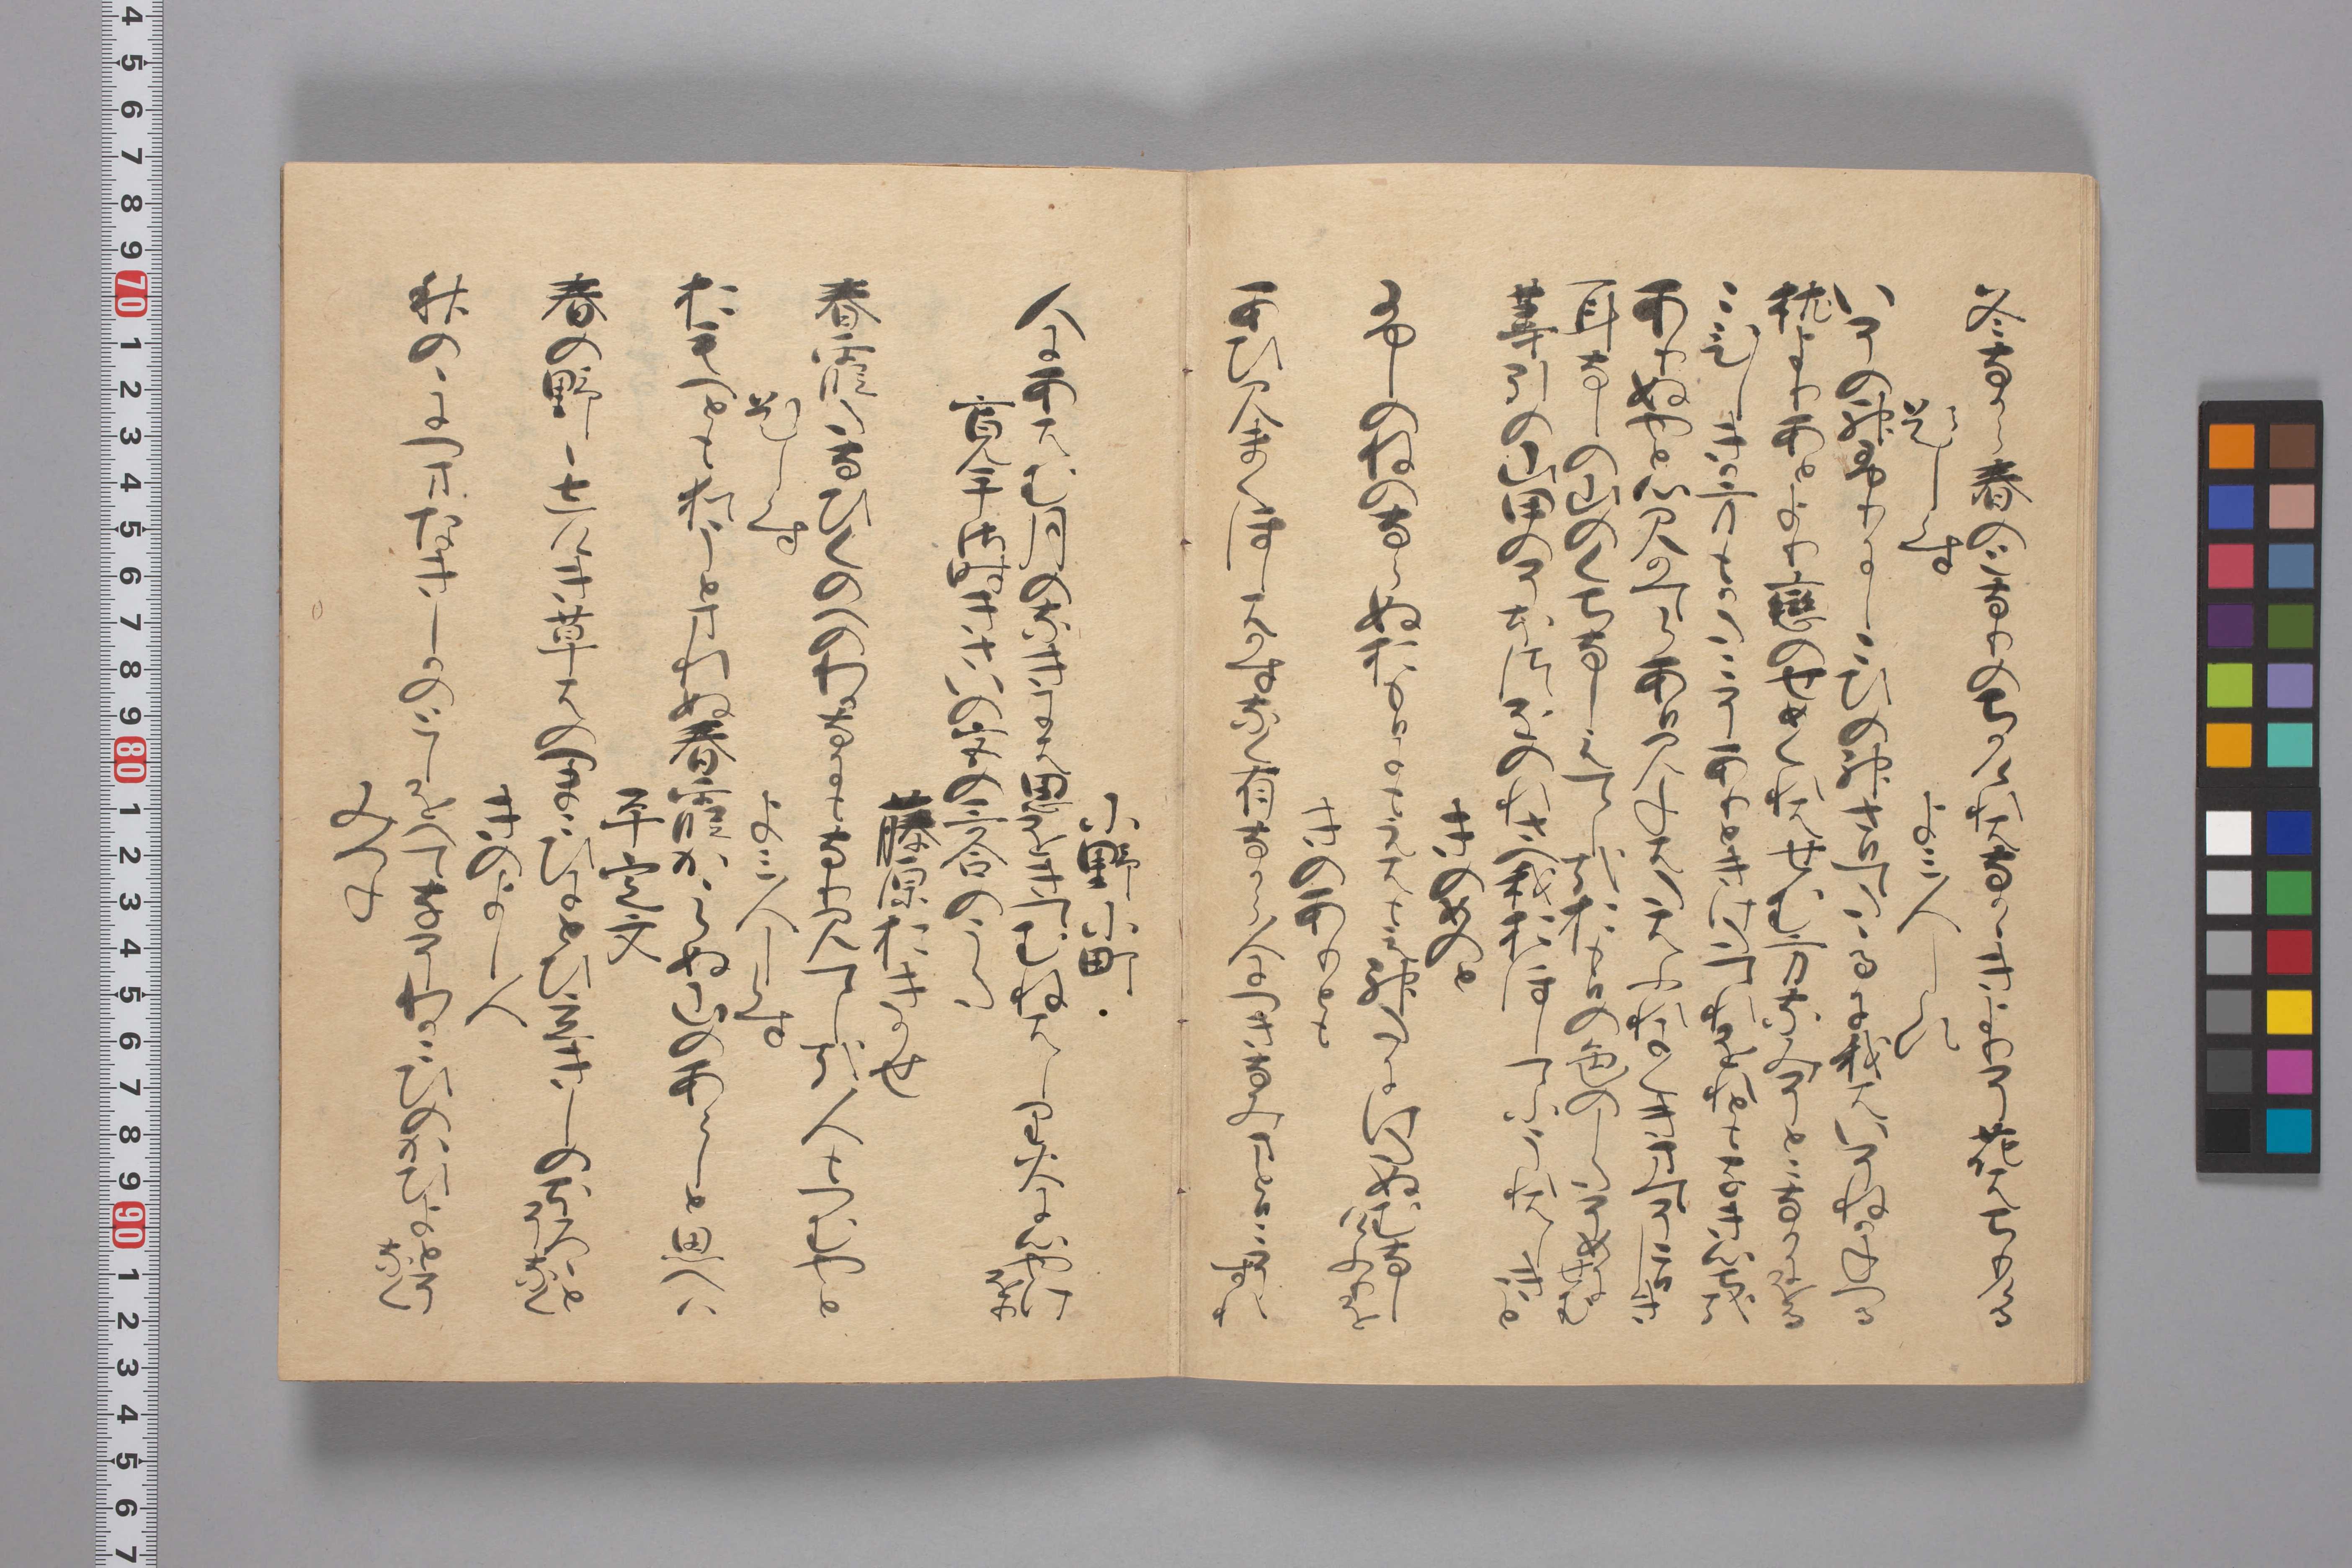 冬なから春の隣のちかけれは中かきよりそ花はちりける
題しらす　よみ人しらす
いその神ふりにし恋の神さひてたゝるに我はいそねかねつる
枕よりあとより恋のせめくれはせむ方なみそとこ中にをる
恋しきか方もかたこそ有ときけたてれをれともなき心ちかな
ありぬやと心みかてらあひみねはたはふれにくきまてそ恋しき
耳なしの山のくちなしえてしかな思ひの色のしたそめにせむ
葦引の山田のそほつをのれさへ我をほしといふうれはしきこと
きのめのと
ふしのねのならぬおもひにもえはもえ神たにけたぬむなしけふりを
きのありとも
あひ見まくほしは数なく有なから人に月なみまよひこそすれ
小野小町
人にあはむ月のなきには思ひおきてむねはしり火に心やけをり
寛平御時きさいの宮の哥合のうた
藤原おきかせ
春霞たなひくのへのわかなにもなり見てしかな人もつむやと
題しらす　よみ人しらす
おもへとも猶うとまれぬ春霞かゝらぬ山のあらしとおもへは
平貞文
春の野のしけき草はのつまこひにとひたつきしのほろゝとそなく
きのよし人
秋のゝにつまなきしかの年をへてなそわかこひのかひよとそなく
みつね